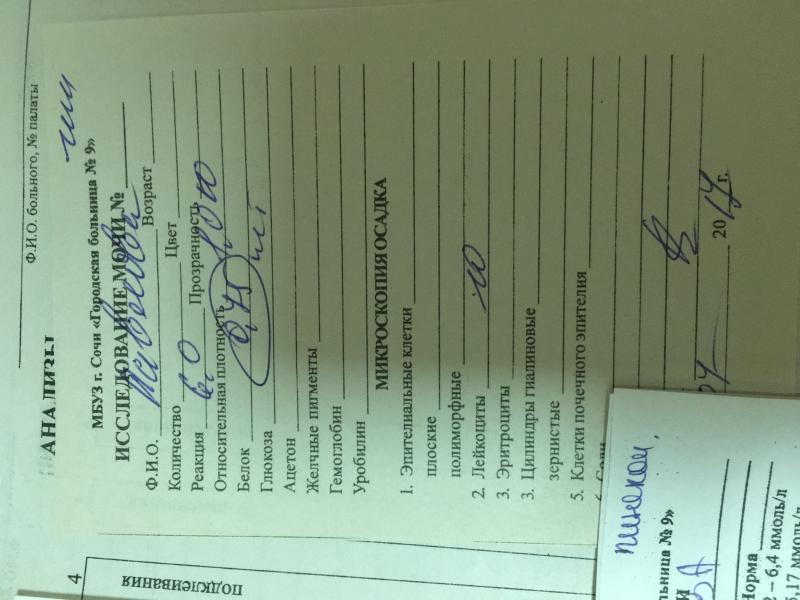 Ф.И.О. больного, № палаты
АНАЛИЗЫ
МБУЗ г. Сочи «Городская больница № 9»
ИССЛЕДОВАНИЕ МОЧИ №
Ф.И.О. Возраст
Количество Цвет
Реакция 6.0 Прозрачность
Относительная плотность
Белок 0,45
Глюкоза
Ацетон
Желчные пигменты
Гемоглобин
Уробилин
МИКРОСКОПИЯ ОСАДКА
1. Эпителиальные клетки
плоские
полиморфные
2. Лейкоциты
3. Эритроциты
3. Цилиндры гиалиновые
зернистые
5. Клетки почечного эпителия
6. Соли
2017 г.
4
подклеивания
льница № 9»
Норма
2 – 6,4 ммоль/л
5,17 ммоль/л